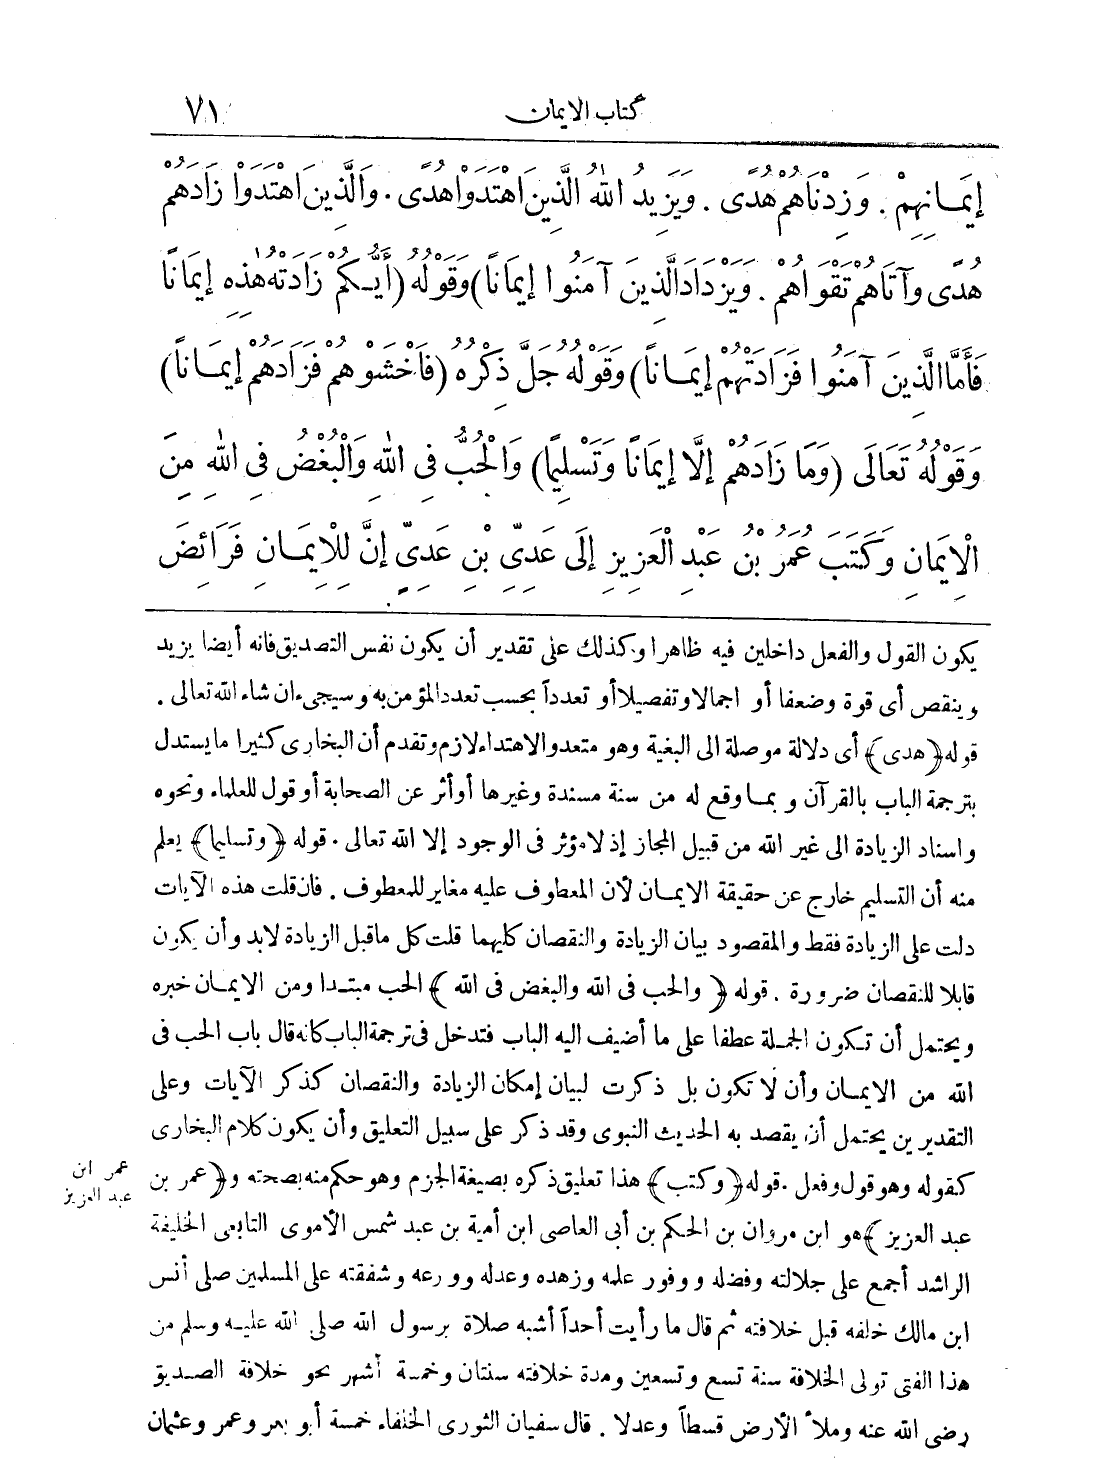 كتاب الايمان ٧١
إِيمَانِهِمْ . وَزِدْنَاهُمْ هُدًى . وَيَزِيدُ اللهُ الَّذِينَ اهْتَدَوْا هُدًى . وَالَّذِينَ اهْتَدَوْا زَادَهُمْ
هُدًى وَآتَاهُمْ تَقْوَاهُمْ . وَيَزْدَادَ الَّذِينَ آمَنُوا إِيمَانًا) وَقَوْلُهُ (أَيُّكُمْ زَادَتْهُ هٰذِهِ إِيمَانًا
فَأَمَّا الَّذِينَ آمَنُوا فَزَادَتْهُمْ إِيمَانًا) وَقَوْلُهُ جَلَّ ذِكْرُهُ (فَاخْشَوْهُمْ فَزَادَهُمْ إِيمَانًا)
وَقَوْلُهُ تَعَالَى (وَمَا زَادَهُمْ إِلَّا إِيمَانًا وَتَسْلِيمًا) وَالْحُبُّ فِى اللهِ وَالْبُغْضُ فِى اللهِ مِنَ
الْإِيمَانِ وَكَتَبَ عُمَرُ بْنُ عَبْدِ الْعَزِيزِ إِلَى عَدِىِّ بْنِ عَدِىٍّ إِنَّ لِلْإِيمَانِ فَرَائِضَ
يكون القول والفعل داخلين فيه ظاهرا وكذلك على تقدير أن يكون نفس التصديق فانه أيضا يزيد
وينقص أى قوة وضعفا أو اجمالا وتفصيلا أو تعدداً بحسب تعدد المؤمن به وسيجىء ان شاء الله تعالى .
قوله ﴿هدى﴾ أى دلالة موصلة الى البغية وهو متعد والاهتداء لازم وتقدم أن البخارى كثيرا ما يستدل
بترجمة الباب بالقرآن و بما وقع له من سنة مسندة وغيرها أو أثر عن الصحابة أو قول للعلماء ونحوه
واسناد الزيادة الى غير الله من قبيل المجاز إذ لا مؤثر فى الوجود إلا الله تعالى . قوله ﴿وتسليما﴾ يعلم
منه أن التسليم خارج عن حقيقة الايمان لأن المعطوف عليه مغاير للمعطوف . فان قلت هذه الآيات
دلت على الزيادة فقط والمقصود بيان الزيادة والنقصان كليهما قلت كل ما قبل الزيادة لابد وأن يكون
قابلا للنقصان ضرورة . قوله ﴿والحب فى الله والبغض فى الله﴾ الحب مبتدا ومن الايمان خبره
ويحتمل أن تكون الجملة عطفا على ما أضيف اليه الباب فتدخل فى ترجمة الباب كانه قال باب الحب فى
الله من الايمان وأن لا تكون بل ذكرت لبيان إمكان الزيادة والنقصان كذكر الآيات وعلى
التقديرين يحتمل أن يقصد به الحديث النبوى وقد ذكر على سبيل التعليق وأن يكون كلام البخارى
كقوله وهو قول وفعل . قوله ﴿وكتب﴾ هذا تعليق ذكره بصيغة الجزم وهو حكم منه بصحته و﴿عمر بن
عمر ابن
عبد العزيز
عبد العزيز﴾ هو ابن مروان بن الحكم بن أبى العاصى ابن أمية بن عبد شمس الأموى التابعى الخليفة
الراشد أجمع على جلالته وفضله ووفور علمه وزهده وعدله وورعه وشفقته على المسلمين صلى أنس
ابن مالك خلفه قبل خلافته ثم قال ما رأيت أحداً أشبه صلاة برسول الله صلى الله عليه وسلم من
هذا الفتى تولى الخلافة سنة تسع وتسعين ومدة خلافته سنتان وخمسة أشهر نحو خلافة الصديق
رضى الله عنه وملأ الأرض قسطاً وعدلا . قال سفيان الثورى الخلفاء خمسة أبو بكر وعمر وعثمان